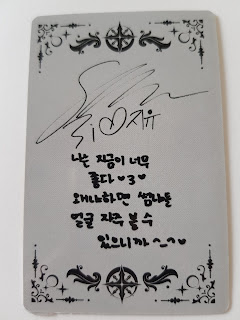 Si♡지유
나는 지금이 너무
좋다 ♥3♥
왜냐하면 썸나들
얼굴 자주 볼 수
있으니까 ^-^♥